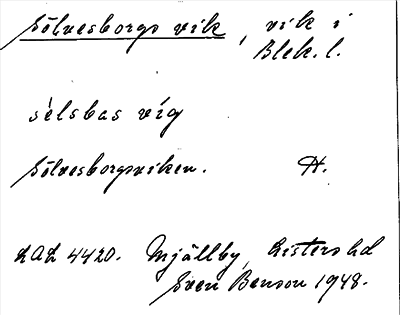 Sölvesborgs vik, vik i
Blek. l.
sèlsbas víg
Sölvesborgsviken. H.
LAL 4420. Mjällby, Listers hd
Sven Benson 1948.